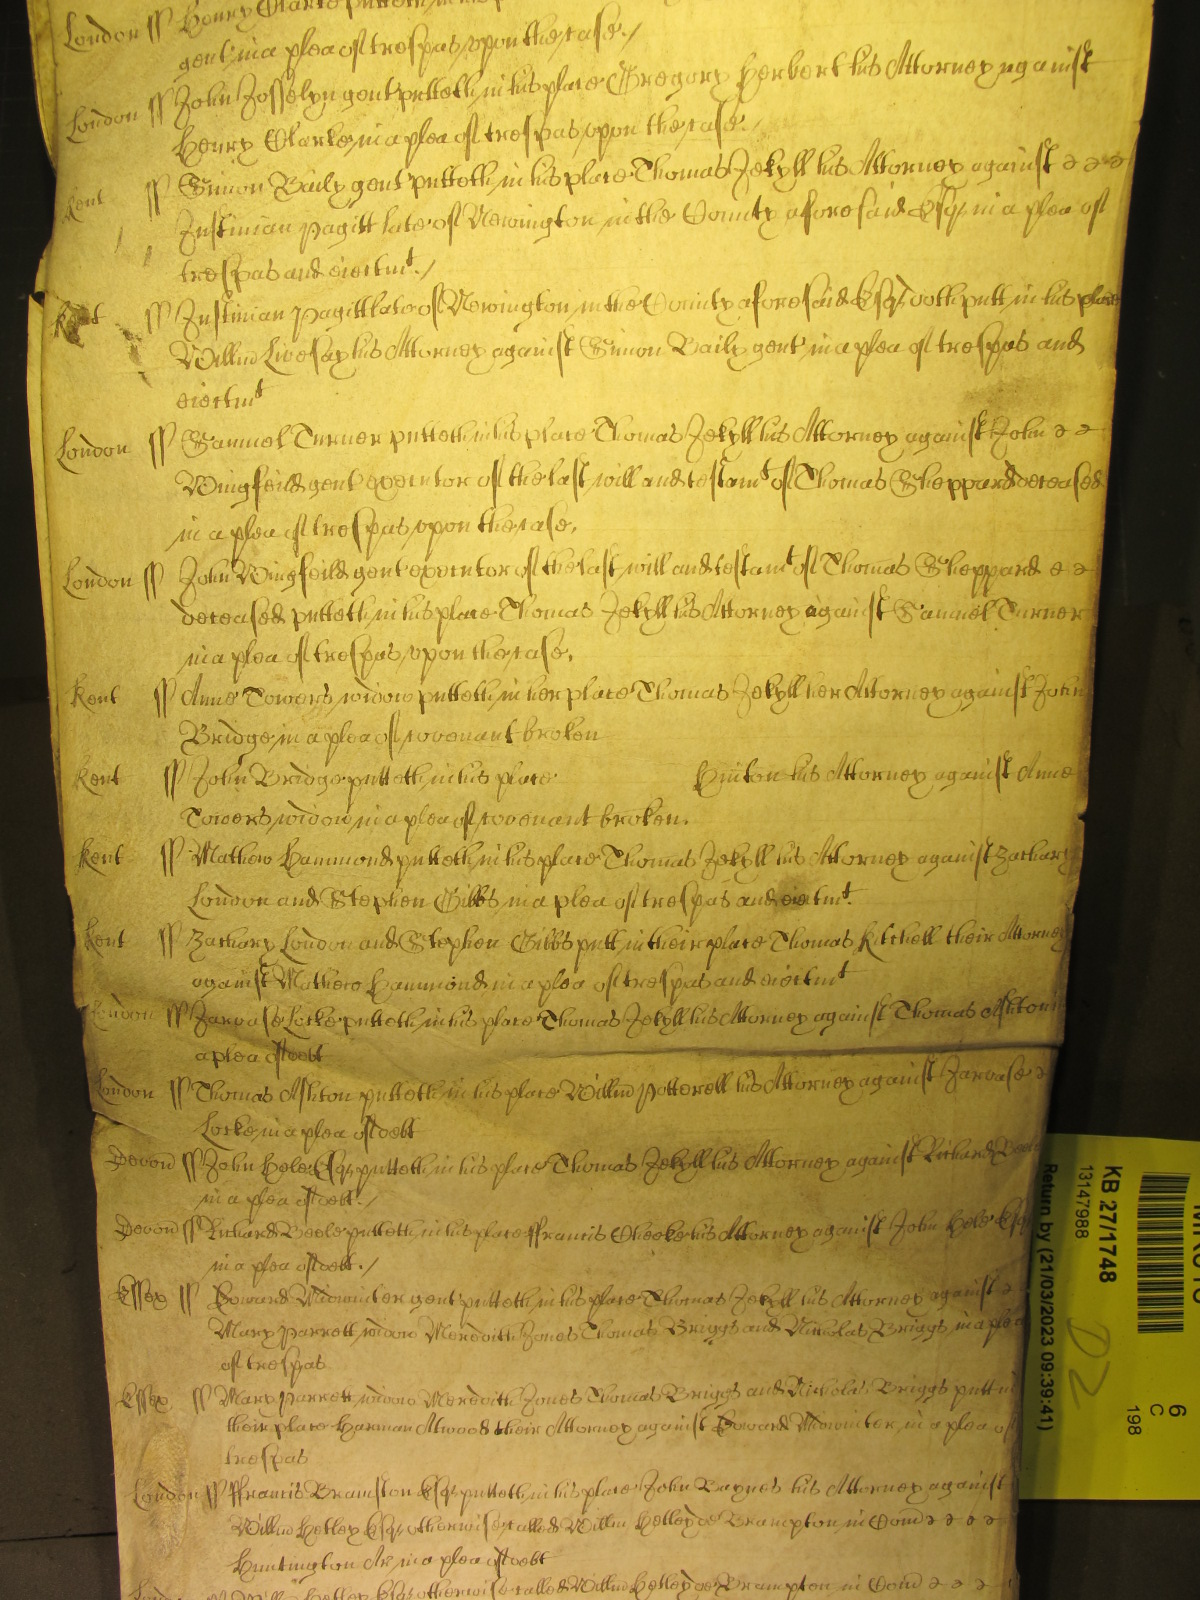 London ss Henry Clarke putteth in his
gent in a plea of trespas upon the case./
London ss John Josselyn gent putteth in his place Gregory Herbert his Attorney against
Henry Clarke in a plea of trespas upon the case./
Kent ss Simon Baily gent putteth in his place Thomas Jekyll his Attorney against
Justinian Pagitt late of Newington in the County aforesaid Esqr in a plea of
trespas and eiectmt./
Kent ss Justinian Pagitt late of Newington in the County aforesaid Esqr doth putt in his place
Willm Livesay his Attorney against Simon Baily gent in a plea of trespas and
eiectmt
London ss Samuel Turner putteth in his place Thomas Jekyll his Attorney against John
Wingfeild gent executor of the last will and testamt of Thomas Sheppard deceased
in a plea of trespas upon the case.
London ss John Wingfeild gent executor of the last will and testamt of Thomas Sheppard
deceased putteth in his place Thomas Jekyll his Attorney against Samuel Turner
in a plea of trespas upon the case.
Kent ss Anne Towers widow putteth in her place Thomas Jekyll her Attorney against John
Bridge in a plea of covenant broken
Kent ss John Bridge putteth in his place Hinton his Attorney against Anne
Towers widow in a plea of covenant broken.
Kent ss Mathew Hammond putteth in his place Thomas Jekyll his Attorney against Zachary
London and Stephen Gibbs in a plea of trespas and eiectmt.
Kent ss Zachary London and Stephen Gibbs putt in their place Thomas Kitchell their Attorney
against Mathew Hammond in a plea of trespas and eiectmt
London ss Jarvase Locke putteth in his place Thomas Jekyll his Attorney against Thomas Ashton in
a plea of debt
London ss Thomas Ashton putteth in his place Willm Potterell his Attorney against Jarvase
Locke in a plea of debt
Devon ss John Hele Esqr putteth in his place Thomas Jekyll his Attorney against Richard
in a plea of debt./
Devon ss Richard Beele putteth in his place ffrancis Cheeke his Attorney against John Hele Esqr
in a plea of debt./
Essex ss Edward Midwinter gent putteth in his place Thomas Jekyll his Attorney against
Mary Parrett widow Meredith Jones Thomas Briggs and Nicholas Briggs in a plea
of trespas
Essex ss Mary Parrett widow Meredith Jones Thomas Briggs and Nicholas Briggs putt in
their place Harman Atwood their Attorney against Edward Midwinter in a plea of
trespas
London ss ffrancis Bramston Esqr putteth in his place John Baynes his Attorney against
Willm Hetley Esqr otherwise called Willm Hetley de Brampton in Com
Huntington Ar in a plea of debt
London ss Willm Hetley Esqr otherwise called Willm Hetley de Brampton in Com
KB 27/1748
13147988
Return by (21/03/2023 09:39:41)
D2
6
C
198